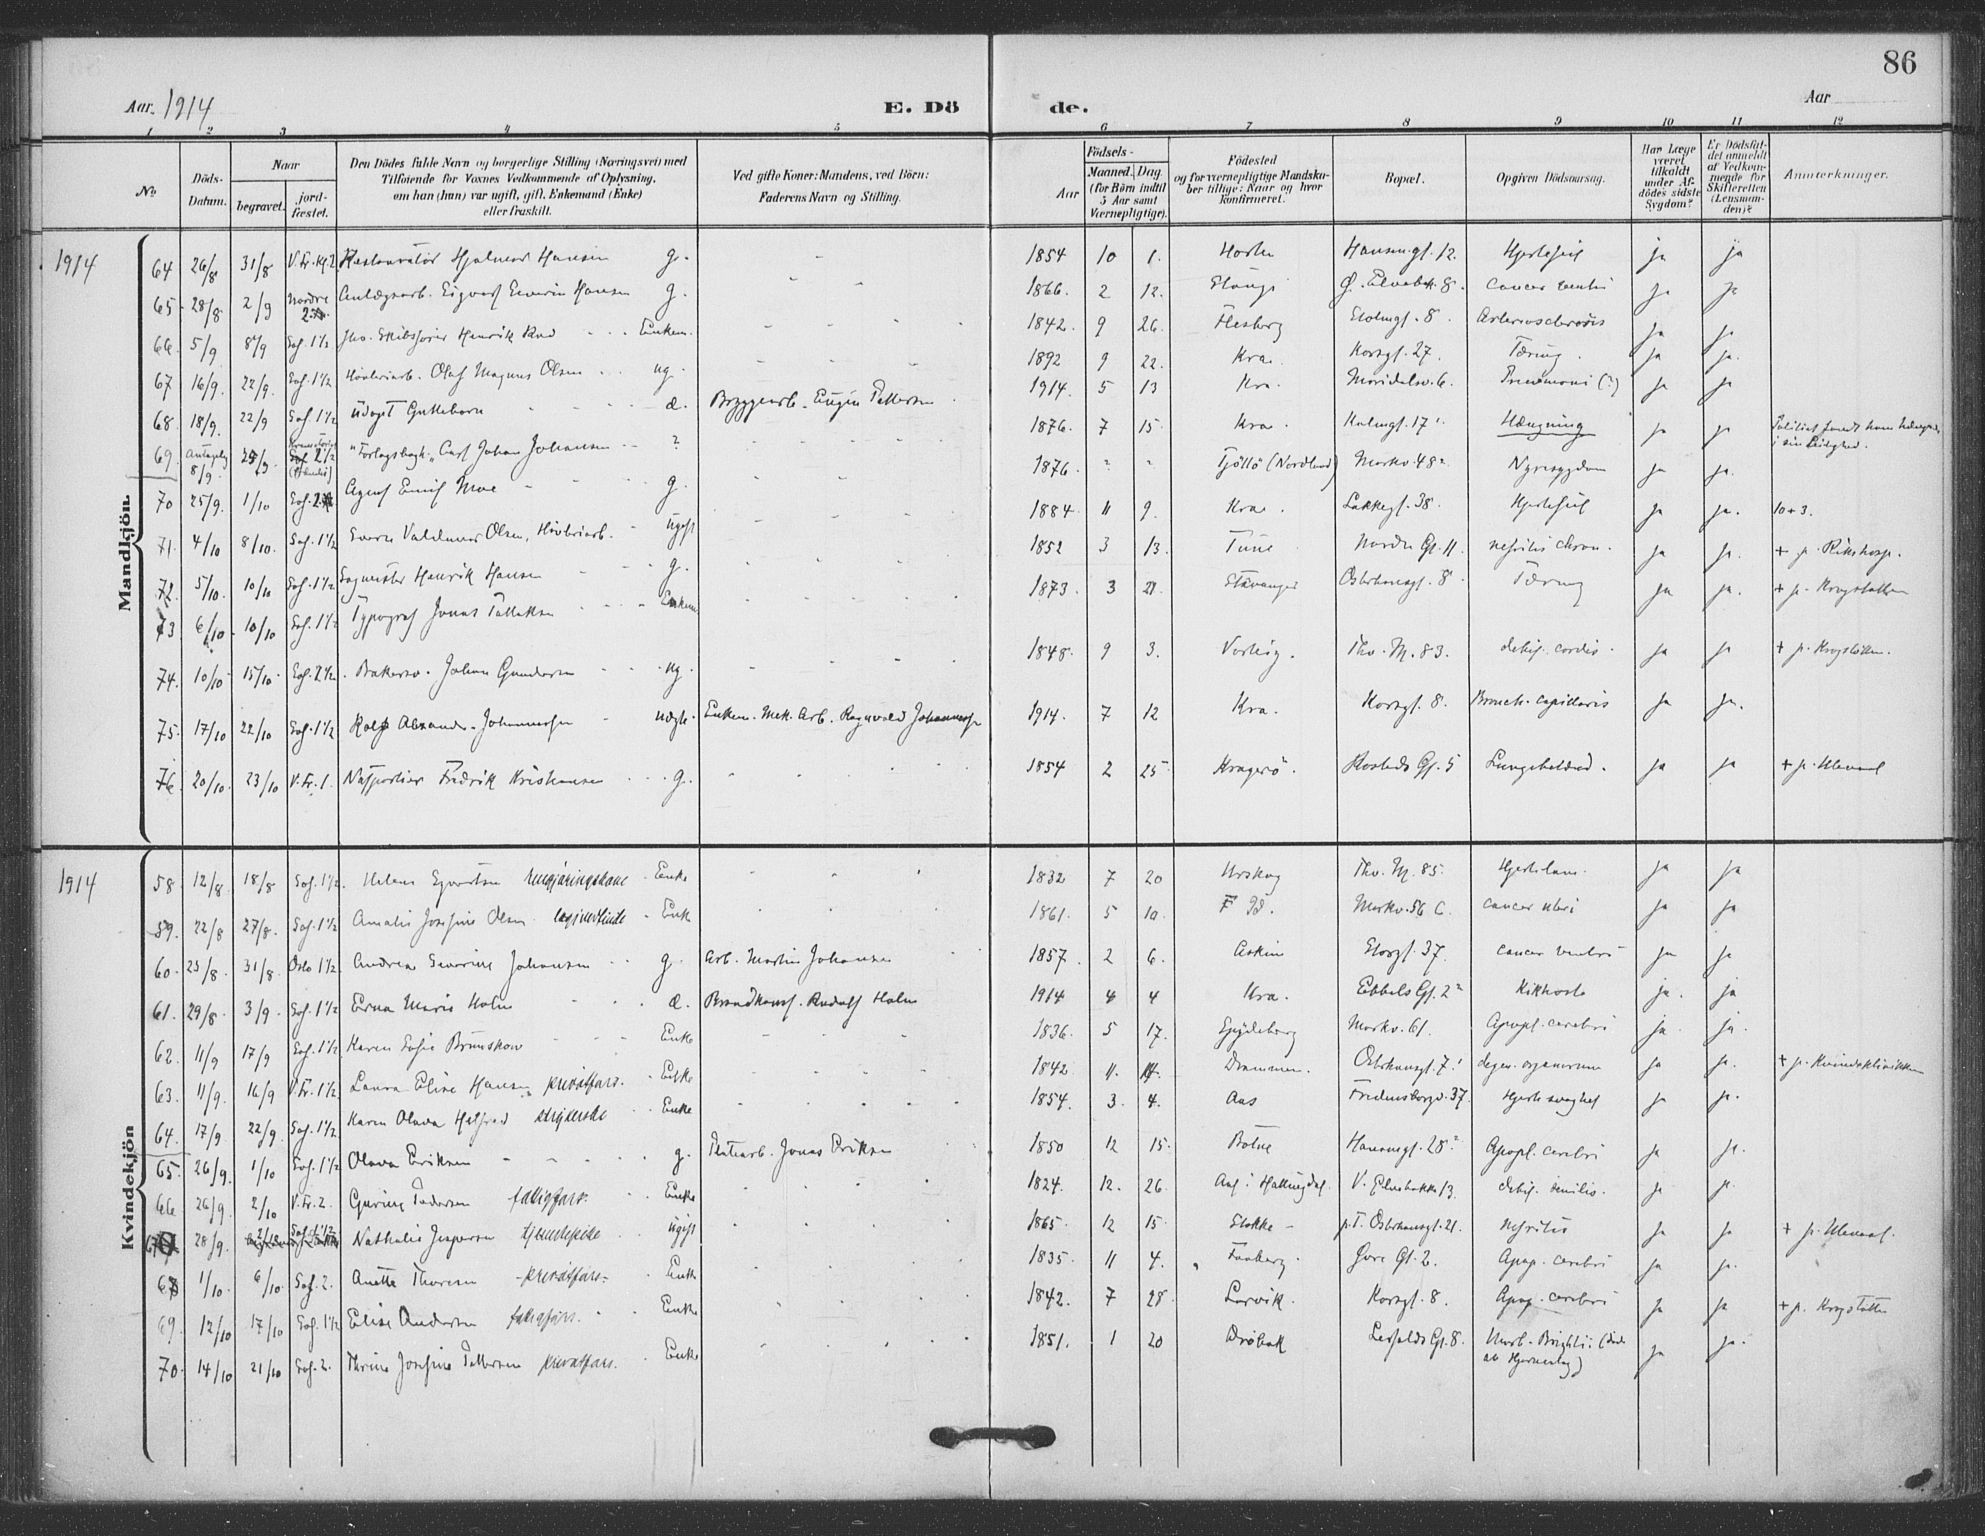 86
Aar. 1914
E. Dö
de.
Aar
1 2 3 4 5 6 7 8 9 10 11 12
No
Döds-Datum.
Naar
begravet.
jord-fæstet.
Den Dödes fulde Navn og borgerlige Stilling (Næringsvei) med
Tilföiende for Voxnes Vedkommende af Oplysning,
om han (hun) var ugift, gift, Enkemand (Enke)
eller fraskilt.
Ved gifte Koner: Mandens, ved Börn:
Faderens Navn og Stilling.
Aar
Födsels-
Maaned. Dag
(for Börn indtil
5 Aar samt
Værnepligtige).
Födested
og for værnepligtige Mandska-
ber tillige: Naar og hvor
konfirmeret.
Bopæl.
Opgiven Dödsaarsag.
Har Læge
været
tilkaldt
under Af-
dödes sidste
Sygdom?
Er Dödsfal-
det anmeldt
af Vedkom-
mende for
Skifteretten
(Lensman-
den)?
Anmærkninger.
Mandkjön.
1914 64 26/8 31/8 V. Fr. Kp 2 Restauratör Hjalmar Hansen g. 1854 10 1. Horten Hansengt. 12. Hjertefeil ja ja
65 28/8 2/9 Nordre Anlægsarb. Sigvart Severin Hansen g. 1866. 2 12. Ø. Elvebk. 8. cancer ventri ja ja
66 5/9 8/9 Sof. 1½ Skibsförer Henrik Enkem. 1842. 9 26. Flesberg Holmgt. 8. Arteriosclerosis ja ja
67 16/9. 22/9. Sof. 1½ Hövleriarb. Olaf Magnus Olsen ug. 1892 9 22. Kra. Korsgt. 27. Tæring. ja ja.
68. 18/9. 22/9 Sof. 1½ Udöpt Guttebarn æ. Bryggearb. Eugen Pettersen 1914. 5 13 Kra. Maridalsv. 6. Pneumoni (?) ja ja
69. Antagelig 8/9. 25/9. "Forlagsbogh." Carl Johan Johansen ? 1876. 7 15. Kra. Holmgt. 17 Hængning ja ja i sin Leilighed.
70 25/9. 1/10 Sof. Agent Emil Moe g. 1876. " " Tjöttö (Nordland) Markv. 48 Nyresygdom ja ja.
71. 4/10 8/10. Sof. 1½ Sverre Valdemar Olsen, Hövleriarb. ugift 1884. 11 9. Kra. Lakkegt. 38. Hjertefeil ja ja. 10+3.
72. 5/10. 10/10 Sof. 1½ Sagmester Henrik Hansen g. 1852 3 13. Tune Nordre Gt. 11. nefritis chron. ja ja. + p. Rikshosp.
73 6/10. 10/10 Sof. 1½ Typograf Jonas Tallaksen Enkem. 1873. 3 21. Stavanger Osterhausgt. 8 Tæring ja ja. + p. Krogstötten
74. 10/10 15/10 Sof. 2½. Bakersv. Johan Gundersen ug. 1848. 9 3. Thv. M. 83. debil. cordis. ja ja + p. Krogstötten.
75. 17/10 22/10 Sof. 1½ Rolf Alexander Johannesen uægte. Enkem. Mek. Arb. Ragnvald Johannesen 1914. 7 12 Kra. Korsgt. 8. Bronch. capillaris ja ja.
76. 20/10. 23/10 V. Fr. 1. Fredrik Kristiansen g. 1854 2 25. Kragerö. Rosteds Gt. 5 Lungebetænd. ja ja + p. Ulleval
Kvindekjön
1914 58. 12/8. 18/8 Sof. 1½. Helene Syvertsen rengjöringskone Enke 1832 7 20 Urskog Thv. M. 85. Hjertelam. ja ja
59. 22/8 27/8. Sof. 1½ Amalie Josefine Olsen. Enke 1861. 5 10. Markv. 56 C. cancer uteri ja ja
60. 25/8. 31/8. Oslo 1½. Andrea Severine Johansen g. Arb. Martin Johansen 1857. 2 6. Askim Storgt. 37. cancer ventri ja ja
61. 29/8. 3/9. Sof. 1½ Erna Marie Holm æ. Brandkonst. Rudolf Holm 1914 4 4 Kra. Ebbels Gt. 2 Kikhoste ja. ja
62. 11/9 17/9 Sof. 1½ Karen Sofie Brunskow Enke 1836. 5 17. Spydeberg Markv. 61. Apopl. cerebri ja. ja.
63. 11/9. 16/9 V. Fr. 1½ Laura Elise Hansen privatfors. Enke 1842. 11. 14. Drammen. Osterhausgt. 7. degen. organorum ja ja. + p. Kvindeklinikken
64. 17/9 22/9 Sof. 1½ Karen Olava strykerske Enke 1854. 3. 4. Aas Fredensborgv. 37. Hjertesvaghet ja ja.
65. 26/9. 1/10 Sof. 1½ Olava Eriksen g. Jonas Eriksen 1850 12 15. Botne Hausmgt. 28 Apopl. cerebri ja ja.
66 26/9. 2/10 V. Fr. 2. Guring Pedersen fattigfors. Enke 1824. 12. 26. Aal i Hallingdal V. Elvebakke 13. debil. senilis. ja ja.
67 28/9. Nathalie Jespersen tjenestepike ugift 1865. 12 15. Stokke p.T. Osterhausgt. 21. nefritis ja ja + p. Ulleval.
68 1/10. 6/10. Sof. 2. Anette Thoresen privatfors. Enke 1835. 11 4. Faaberg. Gt. 2. Apop. cerebri ja ja.
69. 12/10 17/10 Sof. 1½ Elise Andersen fattigfors. Enke 1842. 7 28. Larvik. Korsgt. 8. Apop. cerebri ja ja + p. Krogstötten
70. 14/10 21/10 Sof. 2. Thrine Josefine Pettersen privatfors. Enke 1851. 1 20 Dröbak Gt. 8. Morb. Brightii (död av Hjerneslag) ja ja.